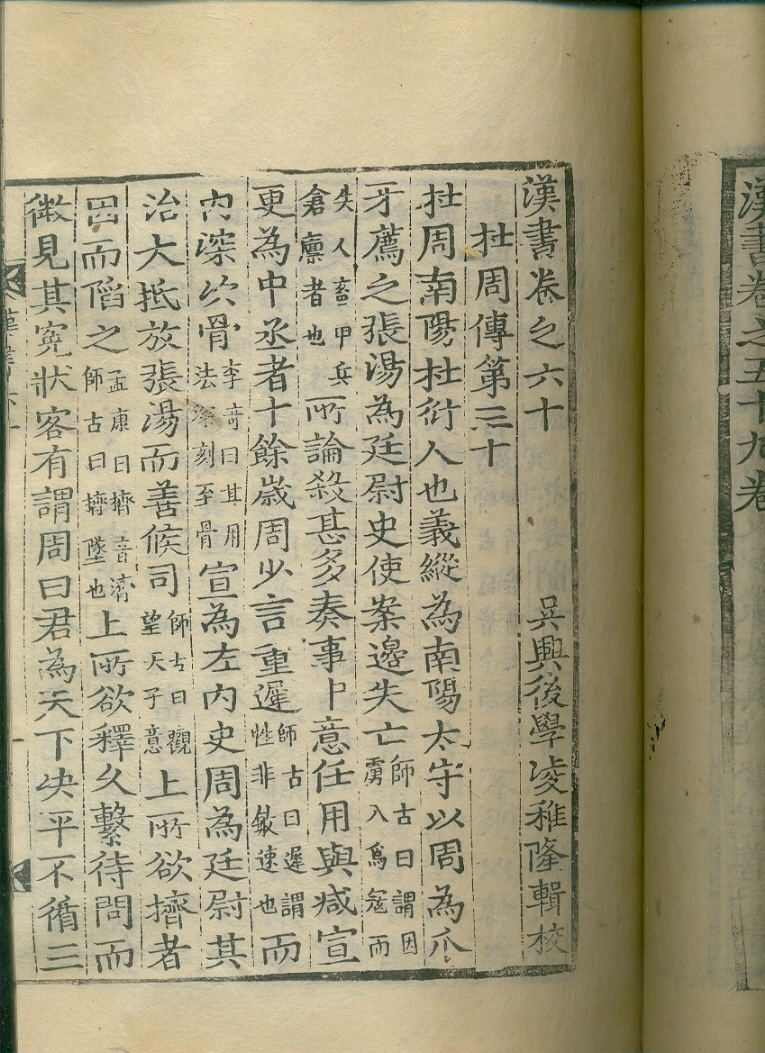 漢書卷之五十九卷
漢書卷之六十 吳興後學凌稚隆輯校
杜周傳第三十
杜周南陽杜衍人也義縱為南陽太守以周為爪
牙薦之張湯為廷尉史使案邊失亡師古曰謂因虜入爲寇而
失人畜甲兵倉廩者也所論殺甚多奏事中意任用與减宣
更為中丞者十餘歲周少言重遲師古曰遲謂性非敏速也而
內深次骨李竒曰其用法深刻至骨宣為左內史周為廷尉其
治大抵放張湯而善候司師古曰觀望天子意上所欲擠者
因而陷之孟康曰擠音濟師古曰擠墜也上所欲釋久繫待問而
微見其寃狀客有謂周曰君為天下决平不循三